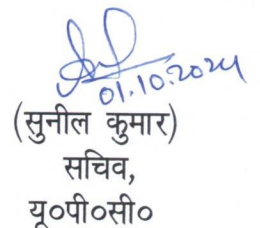 01.10.2024
(सुनील कुमार)
सचिव,
यू०पी०सी०